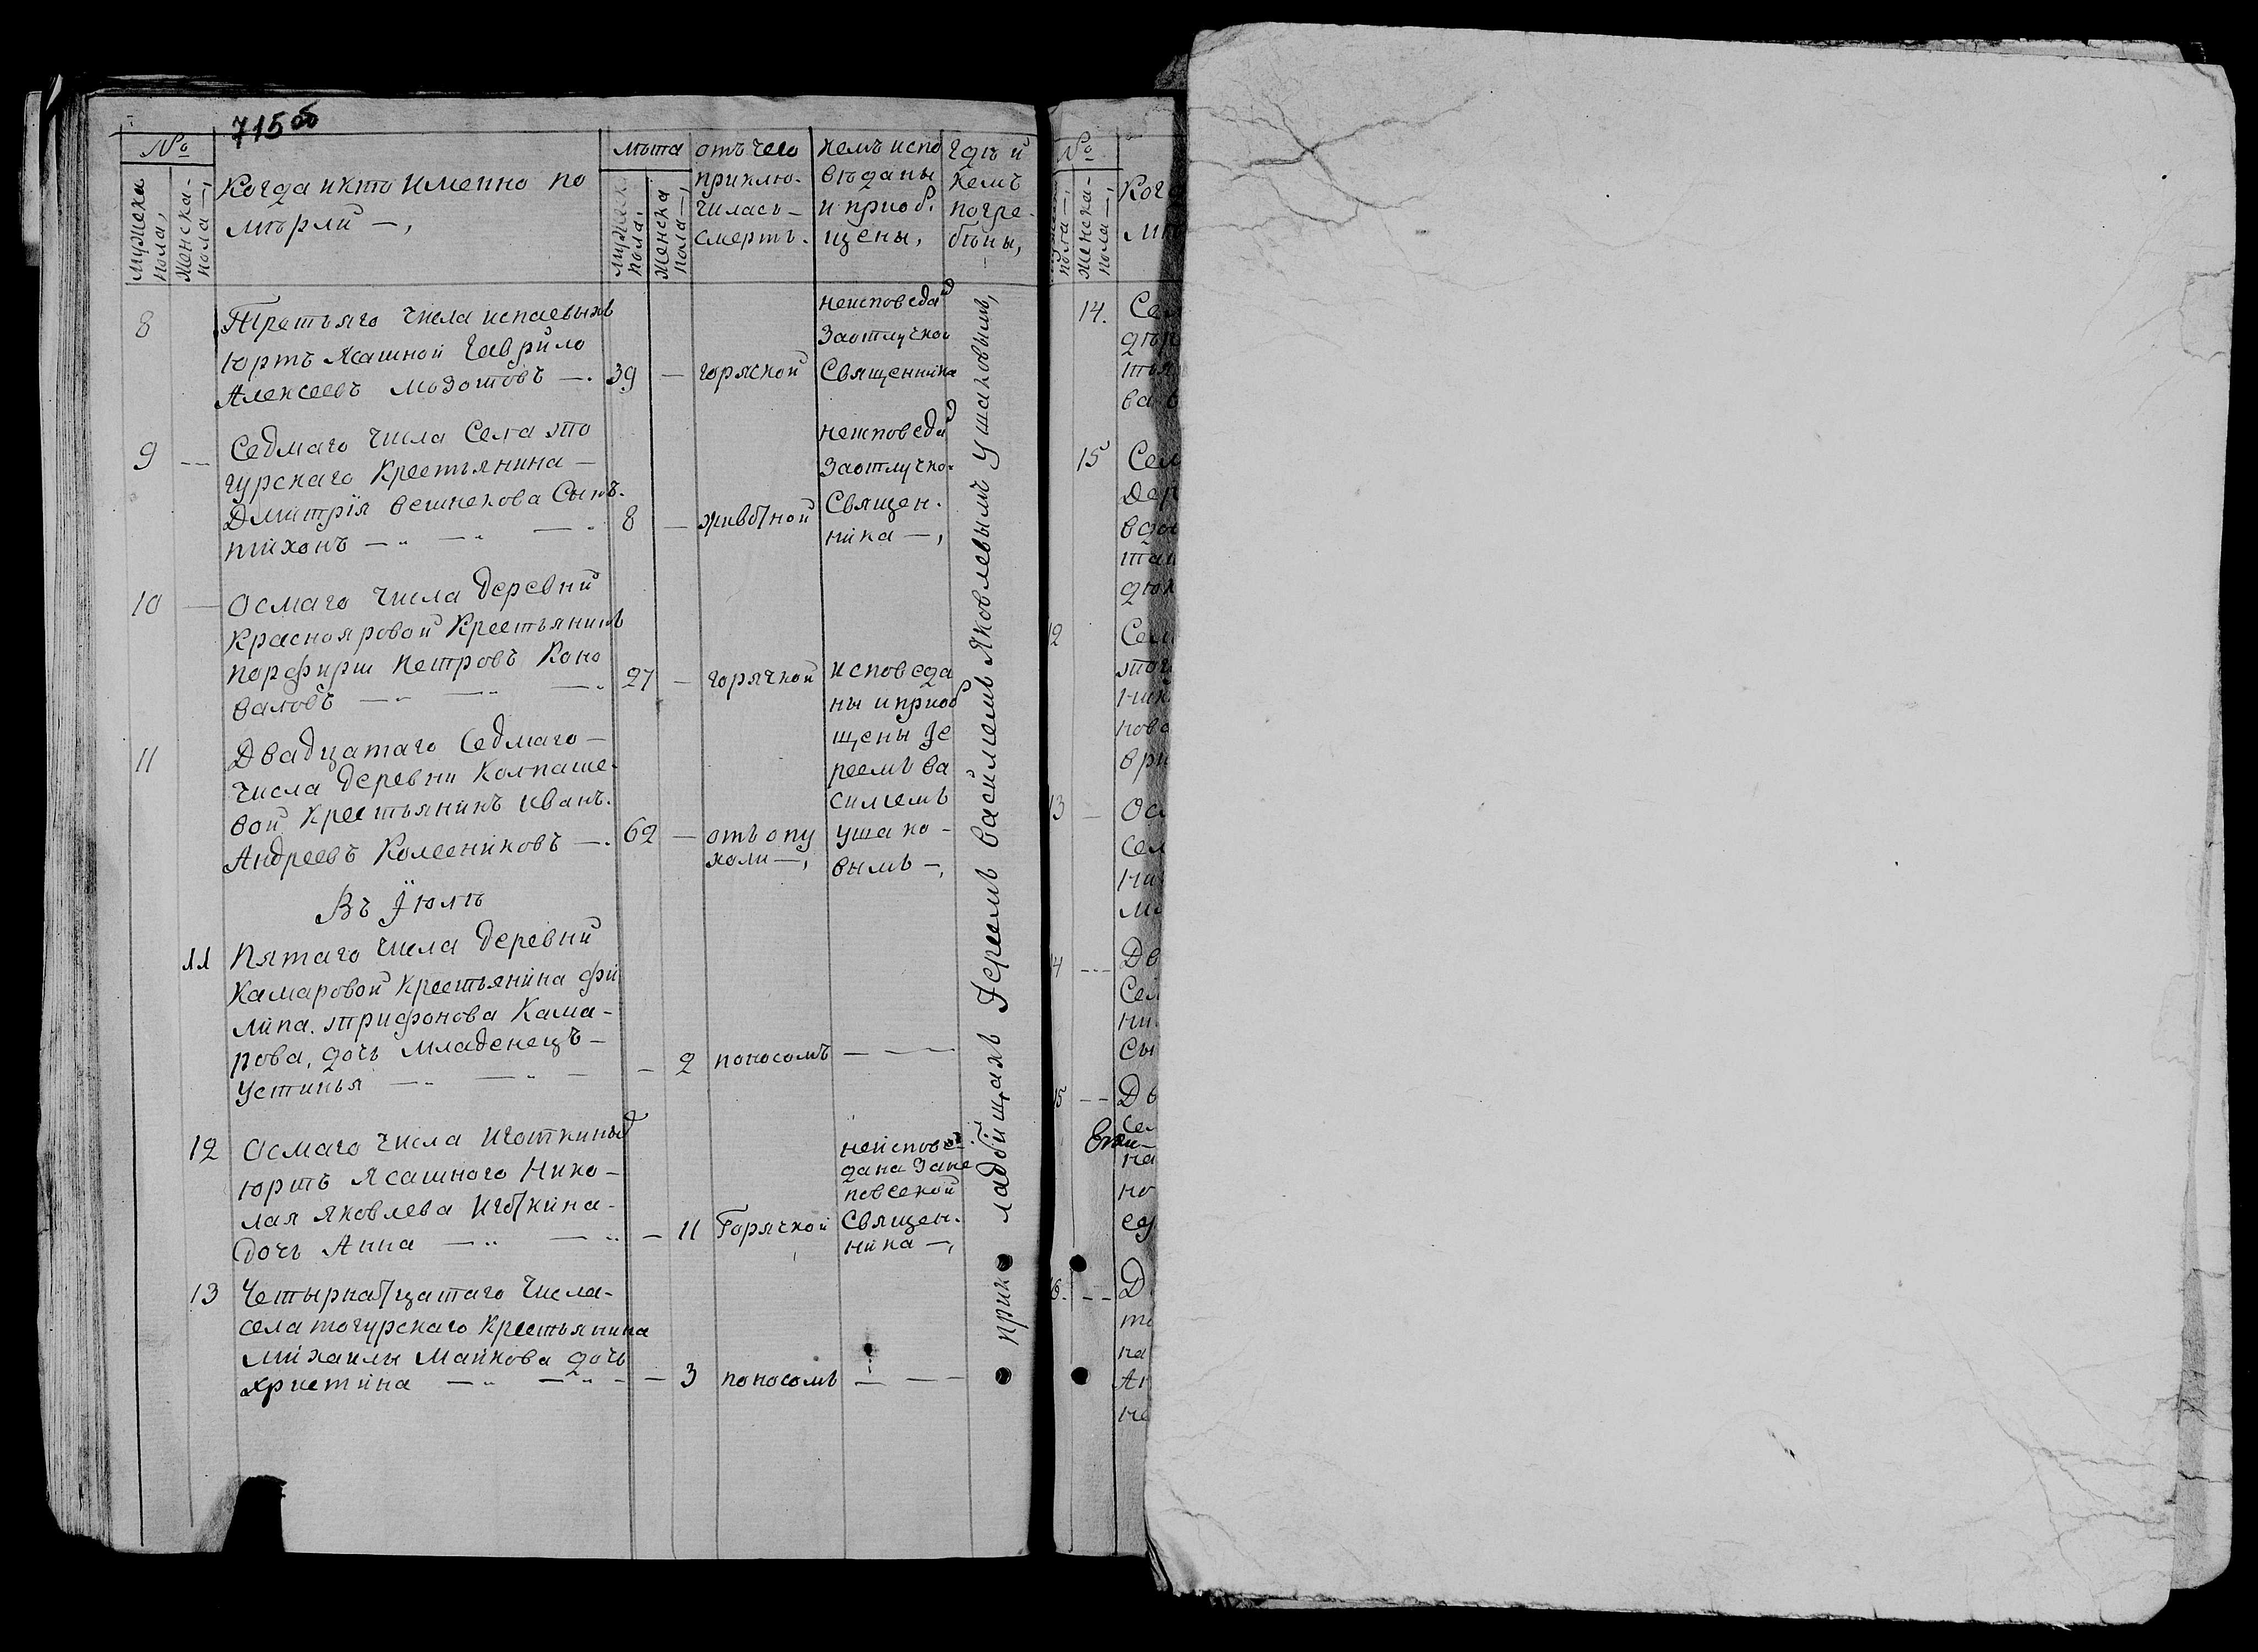 715 об
№
мужеска пола,
женска- пола —,
Когда и кто именно по
мѣрли —,
лѣта
мужеск. пола,
женска пола —,
отъ чего
приклю-
чилась —
смерть.
кемъ испо
вѣданы
и приоб.
щены,
гдѣ и
кемъ
погре-
бѣны,
8
Третьяго числа испаевыхъ
юртъ Ясашной Гаврило
Алексеевъ Мозотовъ —. 39 — горяской
неисповедаⷩ
Заотлучкои
Священника
9 --
Седмаго числа Села это
гурскаго Крестьянина —
Дмитрія вешнекова Сынъ.
тихонъ — „ — „ — „ 8 — живо/ной
неисповедаⷩ
Заотлучко.
Священ.
ника —,
10 —
Осмаго числа деревни
Краснояровои Крестьянинъ
порфирии петровъ Коно
валовъ — „ — „ — „ 27 — горячкои
исповеда
ны и приоб
щены Іе
реемъ ва
силиемъ
ушако-
вымъ —,
11
Двадцатаго Седмаго —
числа деревни Колпаше-
вои Крестьянинъ иванъ.
Андреевъ Колесниковъ —. 62 — отъ опу
холи —,
Въ Іюлѣ
11 Пятаго числа деревни
Камаровои Крестьянина фи
липа. трифонова Кама-
рова, дочь Младенецъ —
Устинья — „ — „ — — 2 поносомъ — — —
12 Осмаго числа Иготкиныⷯ
юртъ Ясашного Нико-
лая яковлева Иго/кина-
дочь Анна — „ — „ — 11 Горячкои
неисповѣ-
дана Зане
повсекои
Священ.
ника —,
13 Четырна/цатаго числа-
села тогурскаго Крестьянина
михаилы Маикова дочь
христина — „ — „ - — 3 поносомъ — — —
при кладбищахъ Іереемъ василиемъ Яковлевымъ Ушаковымъ,
№
пола —,
женска- пола —,
Ког
14. Се
15 Сел
дер
12 Се
13 — Ос
сел
14 --- Дв
Се
15 -- Дв
16. -- Д